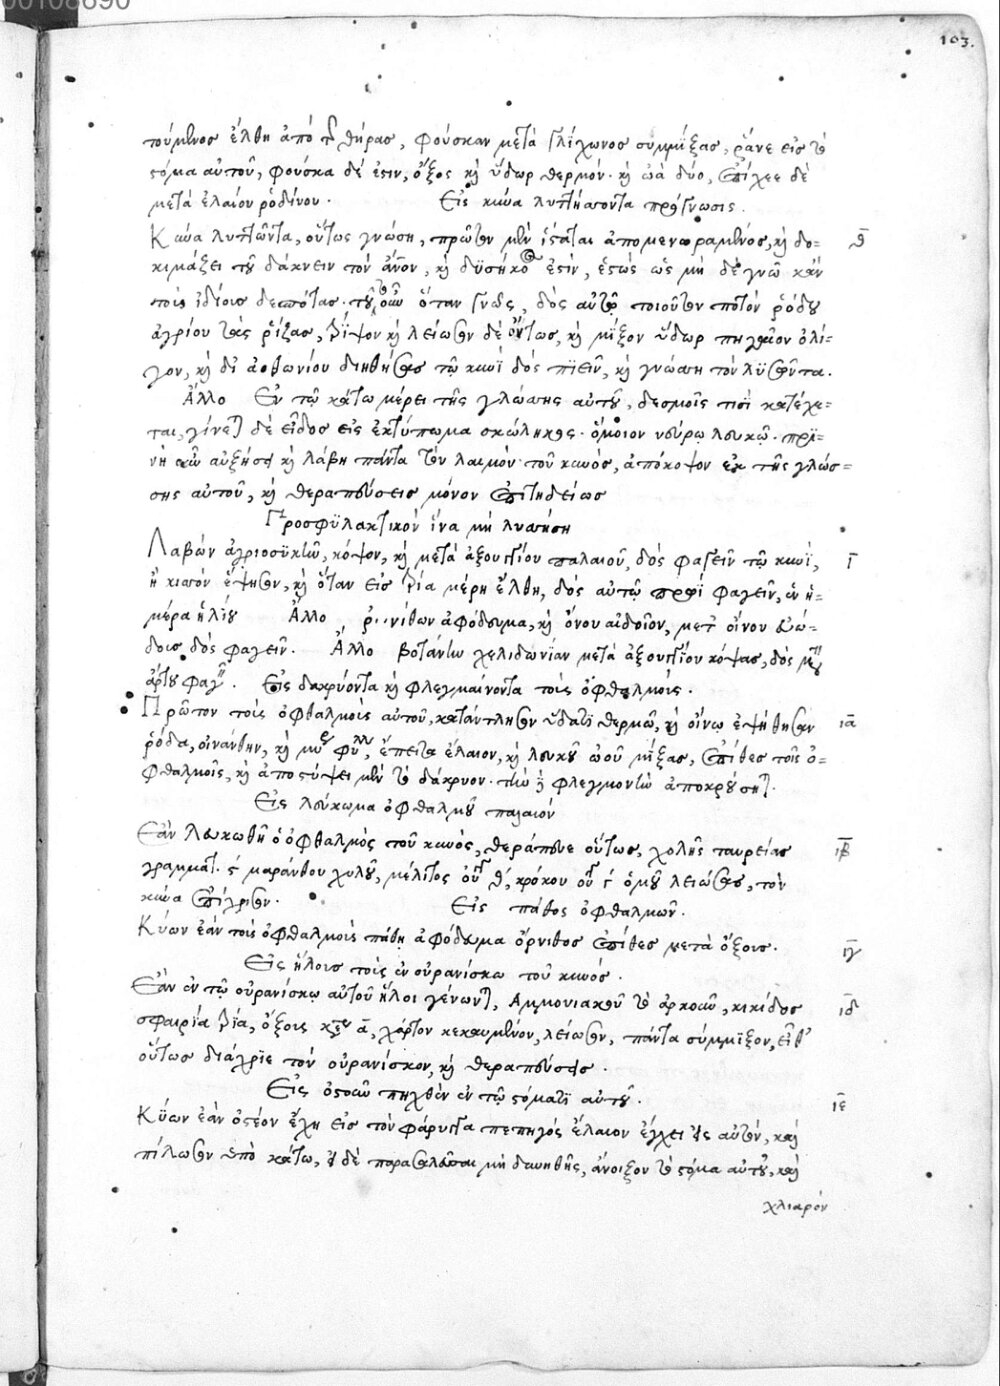 103.
τούμενος ἔλθη ἀπό τ θήρας, φούσκαν μετά γλίχωνος συμμίξας, ῥάνε εἰσ τὸ
στόμα αὐτοῦ, φούσκα δέ ἐστιν, ὄξος κὴ ὕδωρ θερμόν· κὴ ὠὰ δύο, ἐπίχεε δὲ
μετά ἐλαίου ῥοδίνου· Εἰς κύνα λυττήσοντα πρόγνωσις.
Κύνα λυττῶντα, οὕτως γνώση, πρῶτον μὲν ἵσταται ἀπομεμωραμένος, κὴ δο-
θ
κιμάζει τοῦ δάκνειν τὸν ἄνον, κὴ δϋσήκοος ἐστίν, ἑστώς ὡς μὴ δὲ γνῶ κἂν
τοὺς ἰδίους δεσπότας· τοῦτον οὖν ὅταν γνῶς, δὸς αὐτῷ ποιοῦτον ποτόν ῥόδου
ἀγρίου τὰς ῥίζας, τρίψον κὴ λείωσον δὲ οὕτως, κὴ μῖξον ὕδωρ πηγαῖον ὀλί-
γον, κὴ δι' ὀθωνίου διηθήσας τῷ κυνὶ δός πιεῖν, κὴ γνώση τὸν λϋσσῶντα.
Ἄλλο Ἐν τῷ κάτω μέρει τῆς γλώσσης αὐτοῦ, δεσμοῖς τισὶ κατέχε-
ται, γίνεται δὲ εἶδος εἰς ἐκτύπωμα σκώληκος· ὅμοιον νεύρῳ λευκῷ· πρὶ-
νὴ οὖν αὐξήση κὴ λάβη πάντα τὸν λαιμὸν τοῦ κυνός, ἀπόκοψον ἐκ τῆς γλώσ-
σης αὐτοῦ, κὴ θεραπεύσεις μόνον ἐπιτηδείως
Προσφϋλακτικόν ἵνα μὴ λυσσήση
Λαβών ἀγριοσϋκῆν, κόψον, κὴ μετά ἀξουγγίου παλαιοῦ, δός φαγεῖν τῷ κυνὶ,
ι
ἢ κισσόν ἕψησον, κὴ ὅταν εἰσ τρία μέρη ἔλθη, δός αὐτῷ πρωῒ φαγεῖν, ἐν ἡ-
μέρα ἡλίου Ἄλλο, ὀρνίθων ἀφόδευμα, κὴ ὄνου αἰδοῖον, μετ οἴνου εὐώ-
δους δός φαγεῖν. Ἄλλο βοτάνην χελιδωνίαν μετά ἀξουγγίου κόψας, δός μετ
ἄρτου φαγεῖν. Εἰς δακρύοντα κὴ φλεγμαίνοντα τοὺς ὀφθαλμούς.
Πρῶτον τοὺς ὀφθαλμοὺς αὐτοῦ, κατάντλησον ὕδατϊ θερμῷ, κὴ οἴνῳ ἐψήθησαν
ια
ῥόδα, οἰνάνθην, κὴ μυρσ φύλλ, ἔπειτα ἔλαιον, κὴ λευκοῦ ὠοῦ μίξας, ἐπίθες τοῖς ὀ-
φθαλμοῖς, κὴ ἀποστύψει μὲν τὸ δάκρυον· τὴν δὲ φλεγμονὴν ἀποκρούσηται.
Εἰς λεύκωμα ὀφθαλμοῦ παλαιόν
Ἐὰν λευκωθῆ ὁ ὀφθαλμὸς τοῦ κυνὸς, θεράπευε οὕτως, χολῆς ταυρείας
ιβ
γραμματ. ϛ μαράνθου χυλοῦ, μέλιτος οὐγ θ, κρόκου οὐγ ϛ ὁμοῦ λειώσας, τὸν
κύνα ἐπίχρισον. Εἰς πάθος ὀφθαλμῶν.
Κύων ἐὰν τοὺς ὀφθαλμοὺς πάθη ἀφόδευμα ὄρνιθος ἐπίθες μετὰ ὄξους.
ιγ
Εἰς ἥλους τοὺς ἐν οὐρανίσκω τοῦ κυνός.
Ἐὰν ἐν τῷ οὐρανίσκῳ αὐτοῦ ἧλοι γένωνται, Ἀμμονιακοῦ τὸ ἀρκοῦν, κικίδος
ιδ
σφαιρία τρία, ὄξους α, χάρτον κεκαυμένον, λείωσον, πάντα σύμμϊξον, εἶθ'
οὕτως διάχρϊε τὸν οὐρανίσκον, κὴ θεραπεύσεις.
Εἰς ὀστοῦν πηχθὲν ἐν τῷ στόματϊ αὐτοῦ.
Κϋων ἐὰν ὀστέον ἔχη εἰσ τὸν φάρυγγα πεπηγός ἔλαιον ἔγχει εἰς αὐτόν, καὶ
ιε
πίλωσον ὑπὸ κάτω, εἰ δὲ παρασαλεῦσαι μὴ δυνηθῆς, ἄνοιξον τὸ στόμα αὐτοῦ, καὶ
χλιαρόν